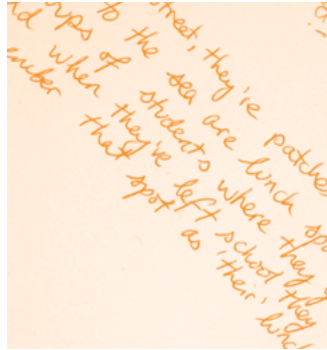 street, they're patche
to the sea are lunch spo
ups of students where they
d when they've left school they
ember that spot as 'their' lunc